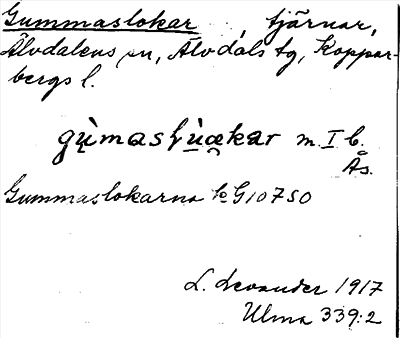 Gummaslokar, tjärnar,
Älvdalens sn, Älvdals tg, Koppar-
bergs l.
gù̩maslù̩ækar m. I b.
Ås.
Gummaslokarna k G10750
L. Levander 1917
Ulma 339:2